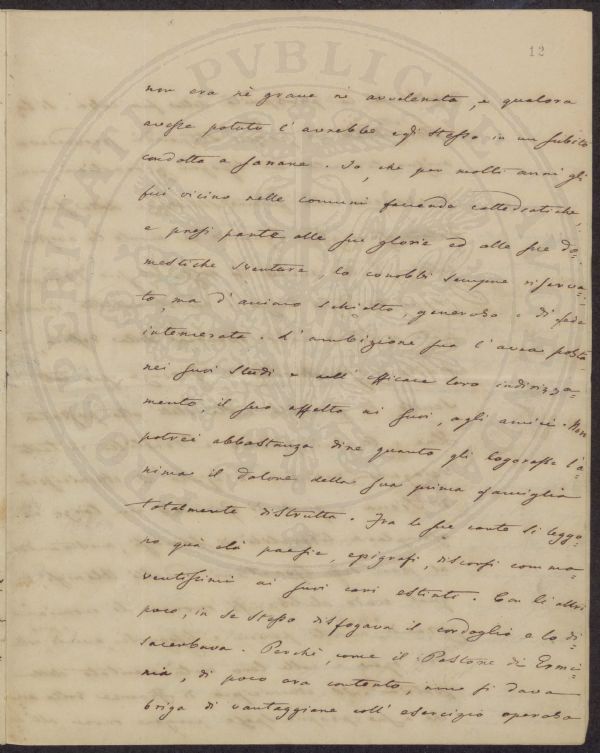 12
non era nè grave nè avvelenata, e qualora
avesse potuto l'avrebbe egli stesso in un subito
condotta a sanare. Io, che per molti anni gli
fui vicino nelle comuni faccende cattedratiche,
e presi parte alle sue glorie ed alle sue do-
mestiche sventure, lo conobbi sempre riserva-
to, ma d'animo schietto, generoso e di fede
intemerata. L'ambizione sua l'avea posta
nei suoi studi e nell'efficace loro indirizza-
mento, il suo affetto ai suoi, agli amici. Non
potrei abbastanza dire quanto gli logorasse l'a-
nima il dolore della sua prima famiglia
totalmente distrutta. Fra le sue carte si leggo-
no quà e là poesie, epigrafi, discorsi commo-
ventissimi ai suoi cari estinti. Con li altri
poco, in se stesso disfogava il cordoglio e lo di-
sacerbava. Perchè, come il Pastore di Ermi-
nia, di poco era contento, non si dava
briga di vantaggiare coll'esercizio operoso